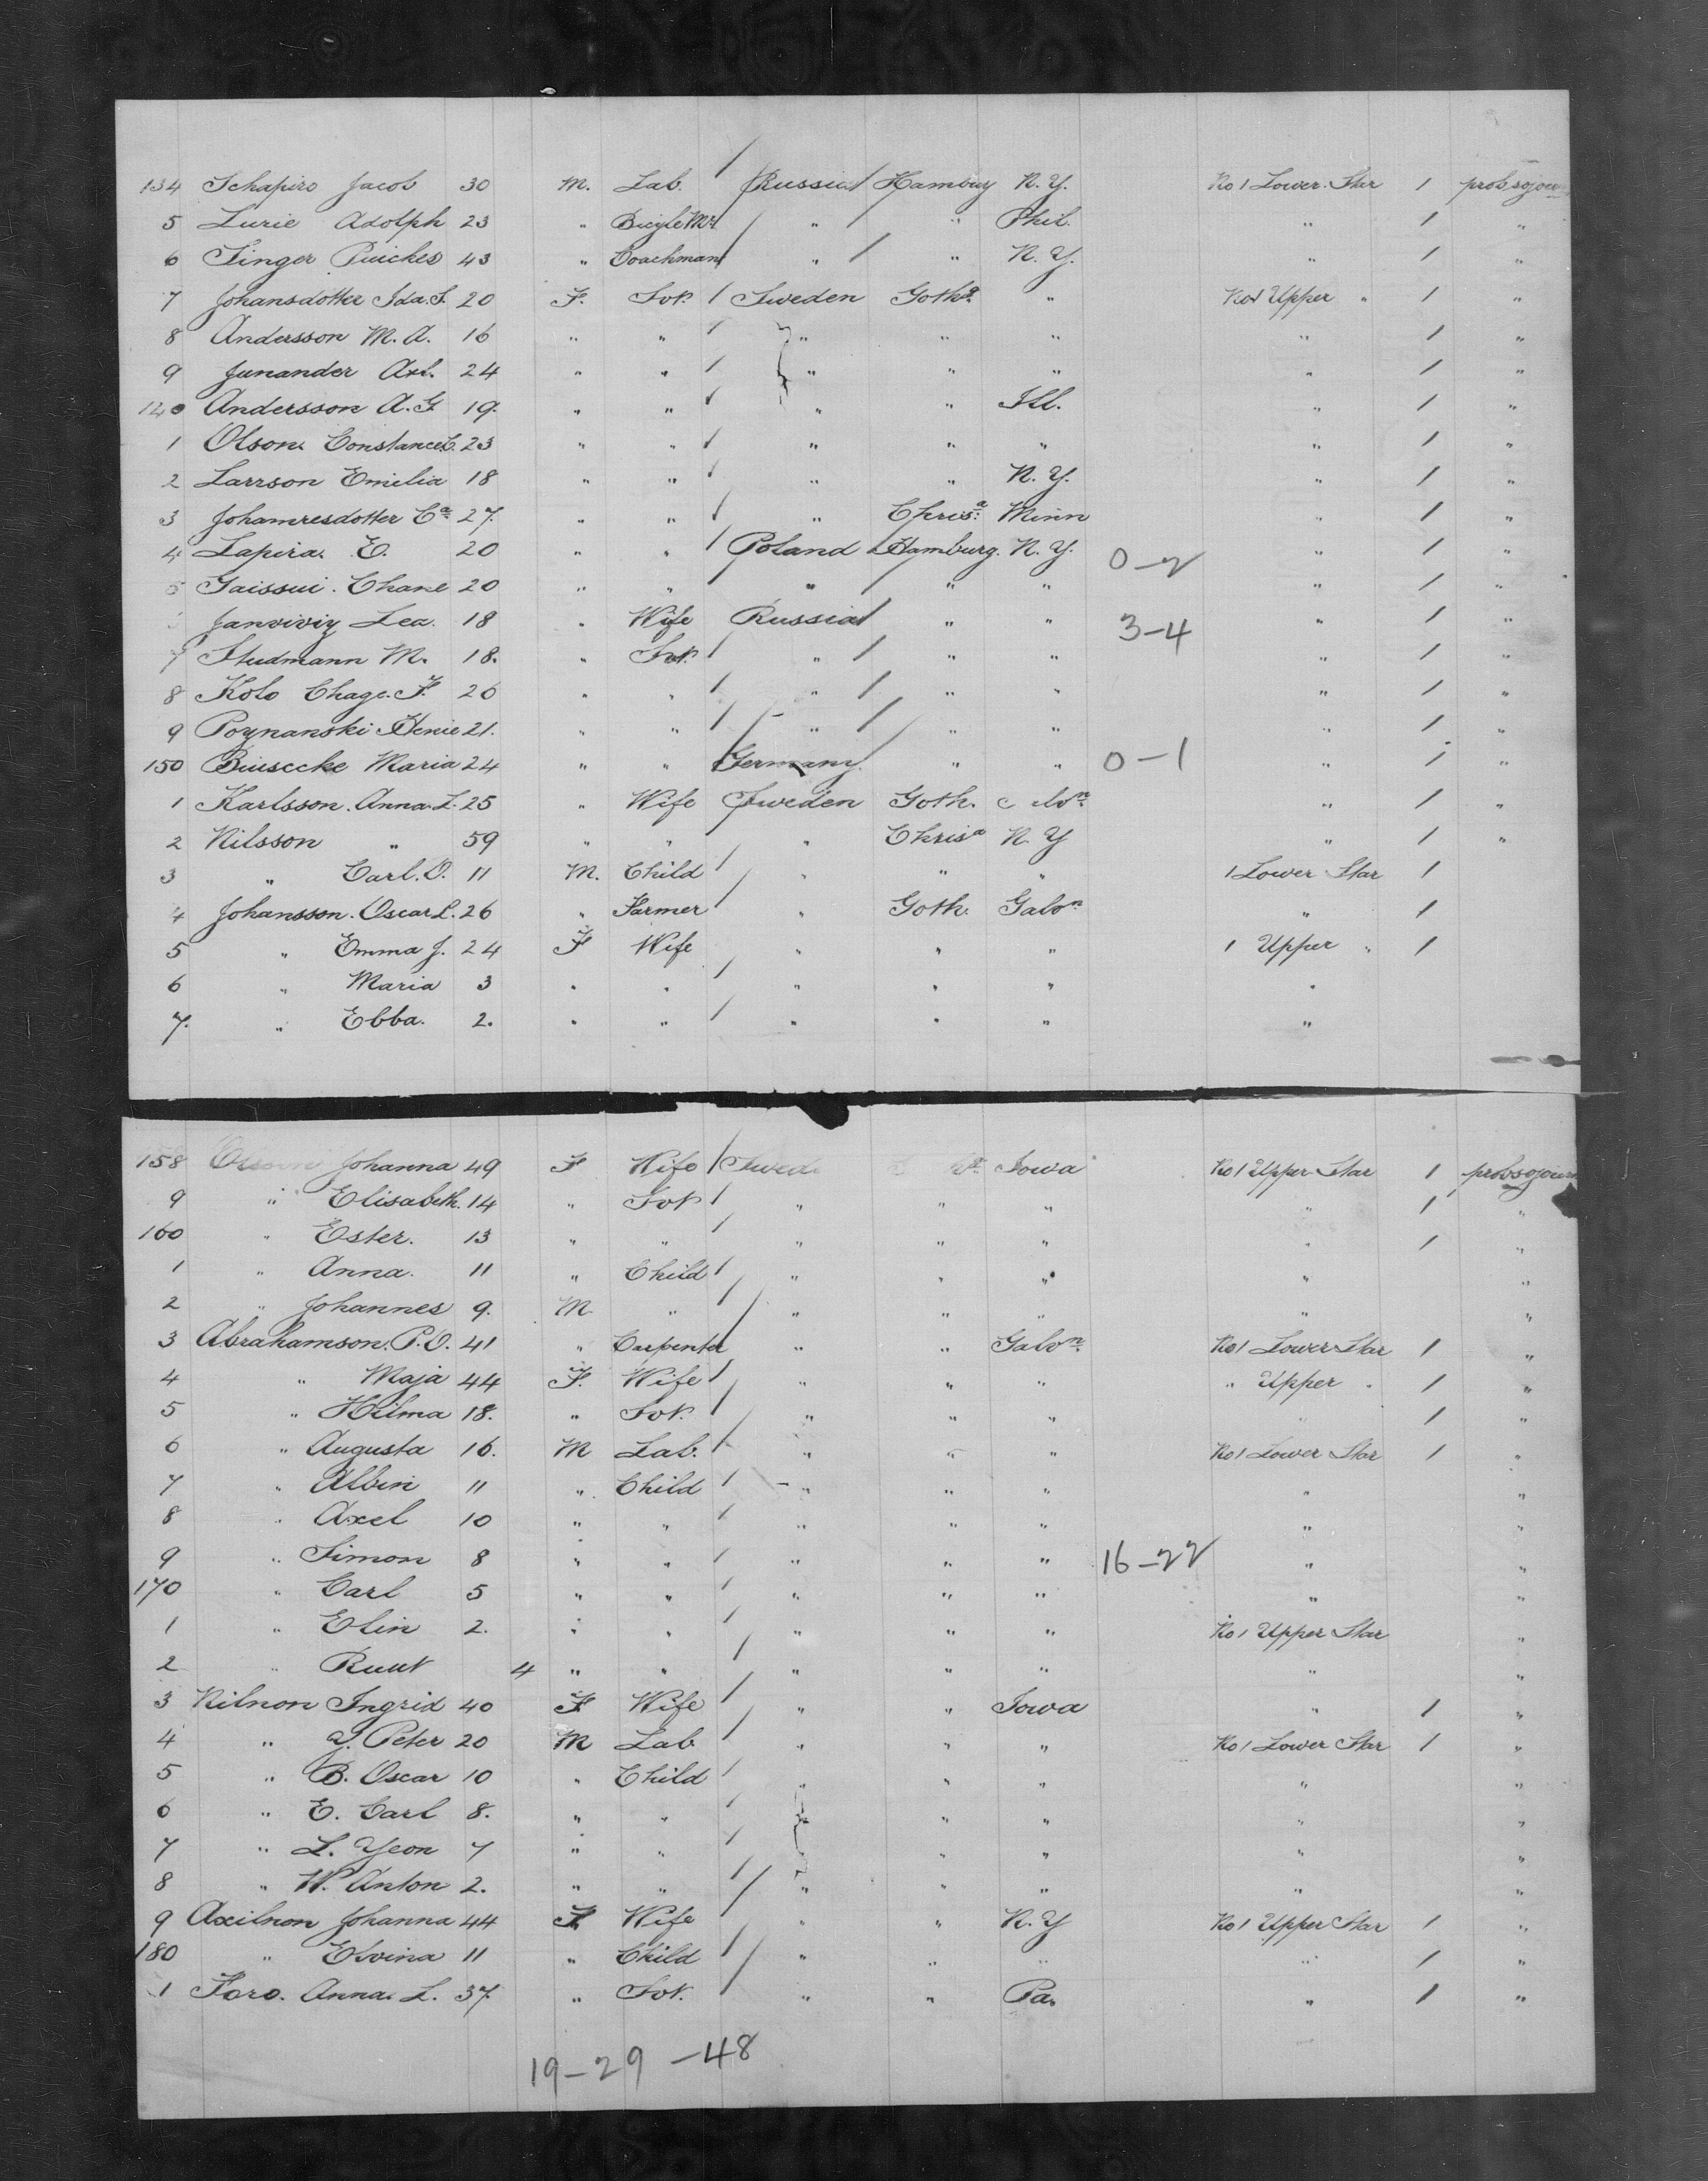 134 Schapiro Jacob 30 M. Lab. Russia Hamburg N.Y. No 1 Lower Star 1 prob sojourn
5 Lurie Adolph 23 " Bicyle Mr " " Phil. " 1 "
6 Singer 43 " Coachman " " N.Y. " 1 "
7 Johansdotter Ida. S. 20 F. Svt. Sweden Gothg. " No 1 Upper " 1 "
8 Andersson M. A. 16 " " " " " " 1 "
9 Junander Axl. 24 " " " " " " 1 "
140 Andersson A. G. 19. " " " " Ill. " 1 "
1 Olson. Constance C. 23 " " " " " " 1 "
2 Larrson Emilia 18 " " " " N.Y. " 1 "
3 Johamresdotter Ca 27. " " " Chris.a Minn " 1 "
4 Lapira. E. 20 " " Poland Hamburg. N.Y. 0-2 " 1 "
5 Gaissui. Chane 20 " " " " " " 1 "
Lea. 18 " Wife Russia " " 3-4 " 1 "
7 Studmann M. 18. " Svt. " " " " 1 "
8 Kolo Chage. F. 26 " " " " " " 1 "
9 Poznanski Henie 21. " " " " " " 1 "
150 Biusecke Maria 24 " " Germany. " " 0-1 " 1 "
1 Karlsson. Anna. L. 25 " Wife Sweden Goth. " 1 "
2 Nilsson " 59 " " " Chrisa N.Y " 1 "
3 " Carl. O. 11 M. Child " " " 1 Lower Star 1
4 Johansson. Oscar L. 26 " Farmer " Goth. Galvn " 1
5 " Emma J. 24 F Wife " " " 1 Upper " 1
6 " Maria 3 " " " " " "
7. " Ebba. 2. " " " " " "
158 Johanna 49 F Wife Swede Iowa No 1 Upper Star 1 prob sojourn
9 " Elisabeth. 14 " Svt " " " " 1 "
160 " Ester. 13 " " " " " " 1 "
1 " Anna. 11 " Child " " " " "
2 " Johannes 9. M. " " " " " "
3 Abrahamson. P. O. 41 " Carpenter " " Galvn. No 1 Lower Star 1 "
4 " Maja 44 F. Wife " " " " Upper " 1 "
5 " Hilma 18. " Svt. " " " " 1 "
6 " Augusta 16. M Lab. " " " No 1 Lower Star 1 "
7 " Albin 11 " Child " " " " "
8 " Axel 10 " " " " " " "
9 " Simon 8 " " " " " 16-22 " "
170 " Carl 5 " " " " " " "
1 " Elin 2. " " " " " No 1 Upper Star "
2 " Ruut 4 " " " " " " "
3 Nilnon Ingrid 40 F Wife " " Iowa " 1 "
4 " J. Peter 20 M Lab " " " No 1 Lower Star 1 "
5 " B. Oscar 10 " Child " " " " "
6 " E. Carl 8. " " " " " " "
7 " L. Yeon 7 " " " " " " "
8 " W. Anton 2. " " " " " " "
9 Axilnon Johanna 44 F Wife " " N.Y No 1 Upper Star 1 "
180 " Elvina 11 " Child " " " " 1 "
1 Foro. Anna. L. 37. " Svt. " " Pa. " 1 "
19-29-48